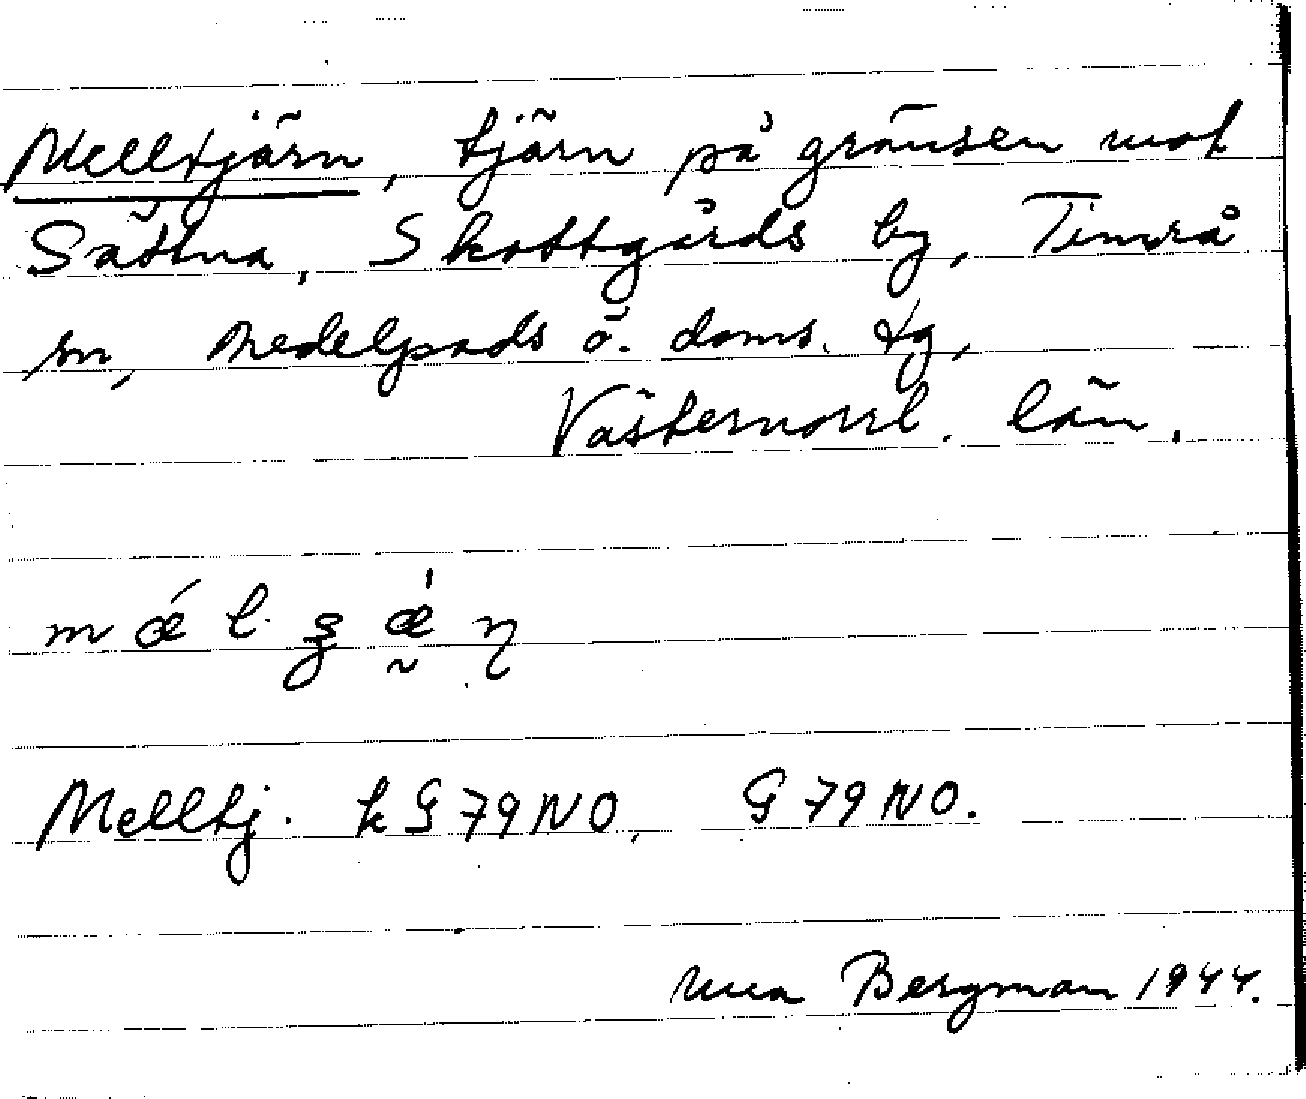 Melltjärn, tjärn på gränsen mot
Sättna, Skottgårds by, Timrå
sn, Medelpads ö. doms. tg,
Västernorrl. län.
Melltj. k G 79 NO, G 79 NO.
Bergman 1944.